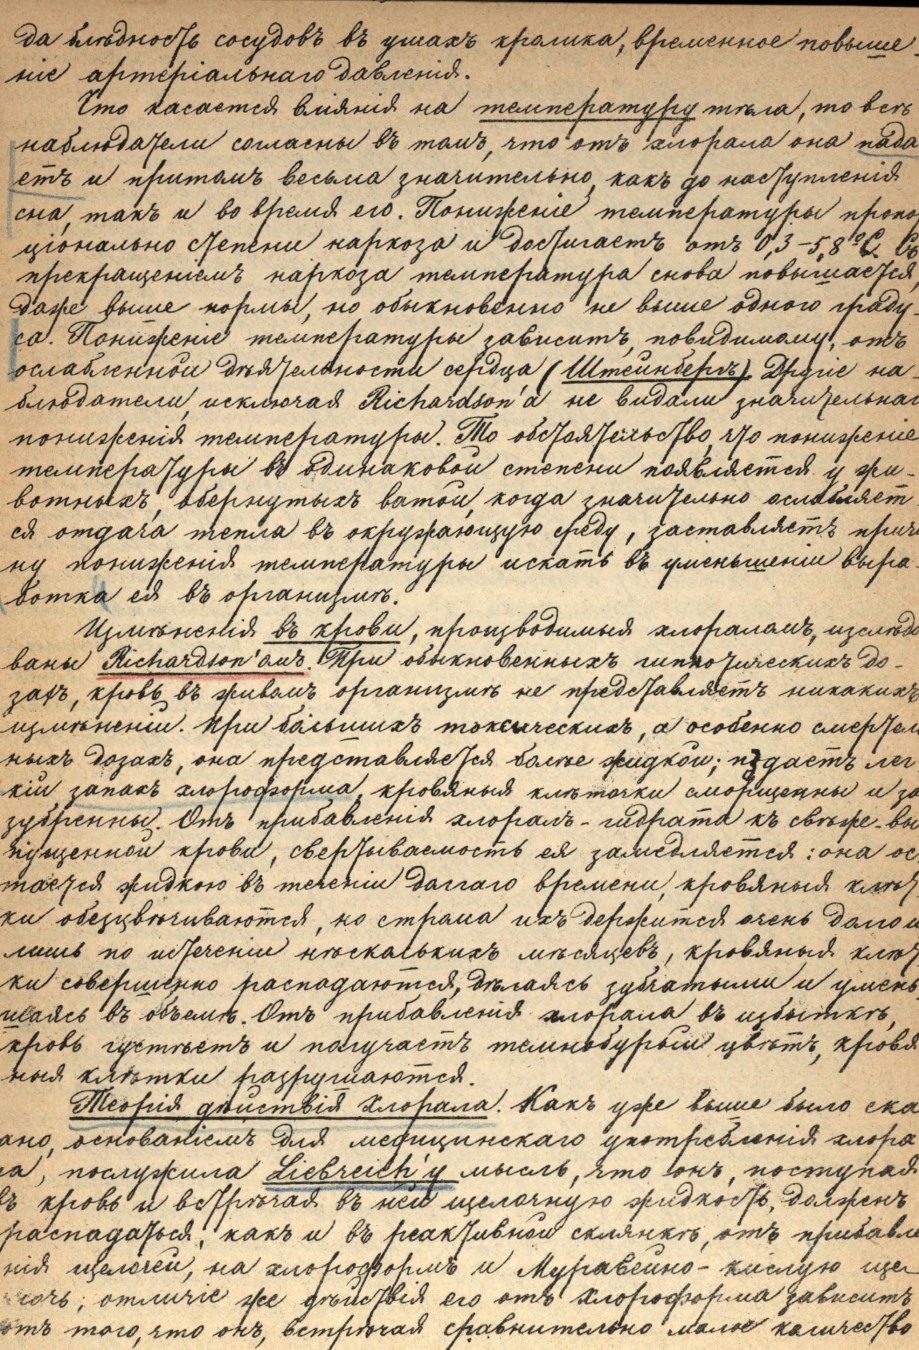 да блѣдность сосудовъ въ ушахъ кролика, временное повыше-
ніе артеріальнаго давленія.
Что касается вліянія на температуру тѣла, то всѣ
наблюдатели согласны въ томъ, что отъ хлорала она пада
етъ и притомъ весьма значительно, какъ до наступленія
сна, такъ и во время его. Пониженіе температуры пропор
ціонально степени наркоза и достигаетъ отъ 0,3–5,8°С. Съ
прекращеніемъ наркоза температура снова повышается,
даже выше нормы, но обыкновенно не выше одного граду-
са. Пониженіе температуры зависитъ, повидимому, отъ
ослабленной дѣятельности сердца, (Штейнбергъ). Другіе на-
блюдатели, исключая Richardson'а не видали значительнаг
пониженія температуры. То обстоятельство, что пониженіе
температуры въ одинаковой степени появляется у жи-
вотныхъ, обернутыхъ ватой, когда значительно ослабляет
ся отдача тепла въ окружающую среду, заставляетъ причи
ну пониженія температуры искать въ уменьшеніи выра-
ботка ея въ организмѣ.
Измѣненія въ крови, производимыя хлораломъ, изслѣдо
ваны Richardson'омъ. При обыкновенныхъ гипнотическихъ до-
захъ, кровь въ живомъ организмѣ не представляетъ никакихъ
измѣненій. При большихъ токсическихъ, а особенно смертель
ныхъ дозахъ, она представляется болѣе жидкой; издаетъ лег
кій запахъ хлороформа, кровяныя клѣточки сморщенны и за
зубренны. Отъ прибавленія хлоралъ-гидрата къ свѣже-вы
пущенной крови, свертываемость ея замедляется: она ос
тается жидкою въ теченіи долгаго времени, кровяныя клѣт
ки обезцвѣчиваются, но строма ихъ держится очень долго и
лишь по истеченіи нѣсколькихъ мѣсяцевъ, кровяныя клѣт
ки совершенно распадаются, дѣлаясь зубчатыми и умень
шаясь въ объемѣ. Отъ прибавленія хлорала въ избыткѣ,
кровь густѣетъ и получаетъ темнобурый цвѣтъ, кровя
ныя клѣтки разрушаются.
Теорія дѣйствія Хлорала. Какъ уже выше было ска
ано, основаніемъ для медицинскаго употребленія хлора
ла, послужила Liebreich'у мысль, что онъ, поступая
въ кровь и встрѣчая въ ней щелочную жидкость, долженъ
распадаться, какъ и въ реактивной склянкѣ, отъ прибавле
нія щелочей, на хлороформъ и Муравейно-кислую ще
лочь; отличіе же дѣйствія его отъ хлороформа зависитъ
отъ того, что онъ, встрѣчая сравнительно малое количество